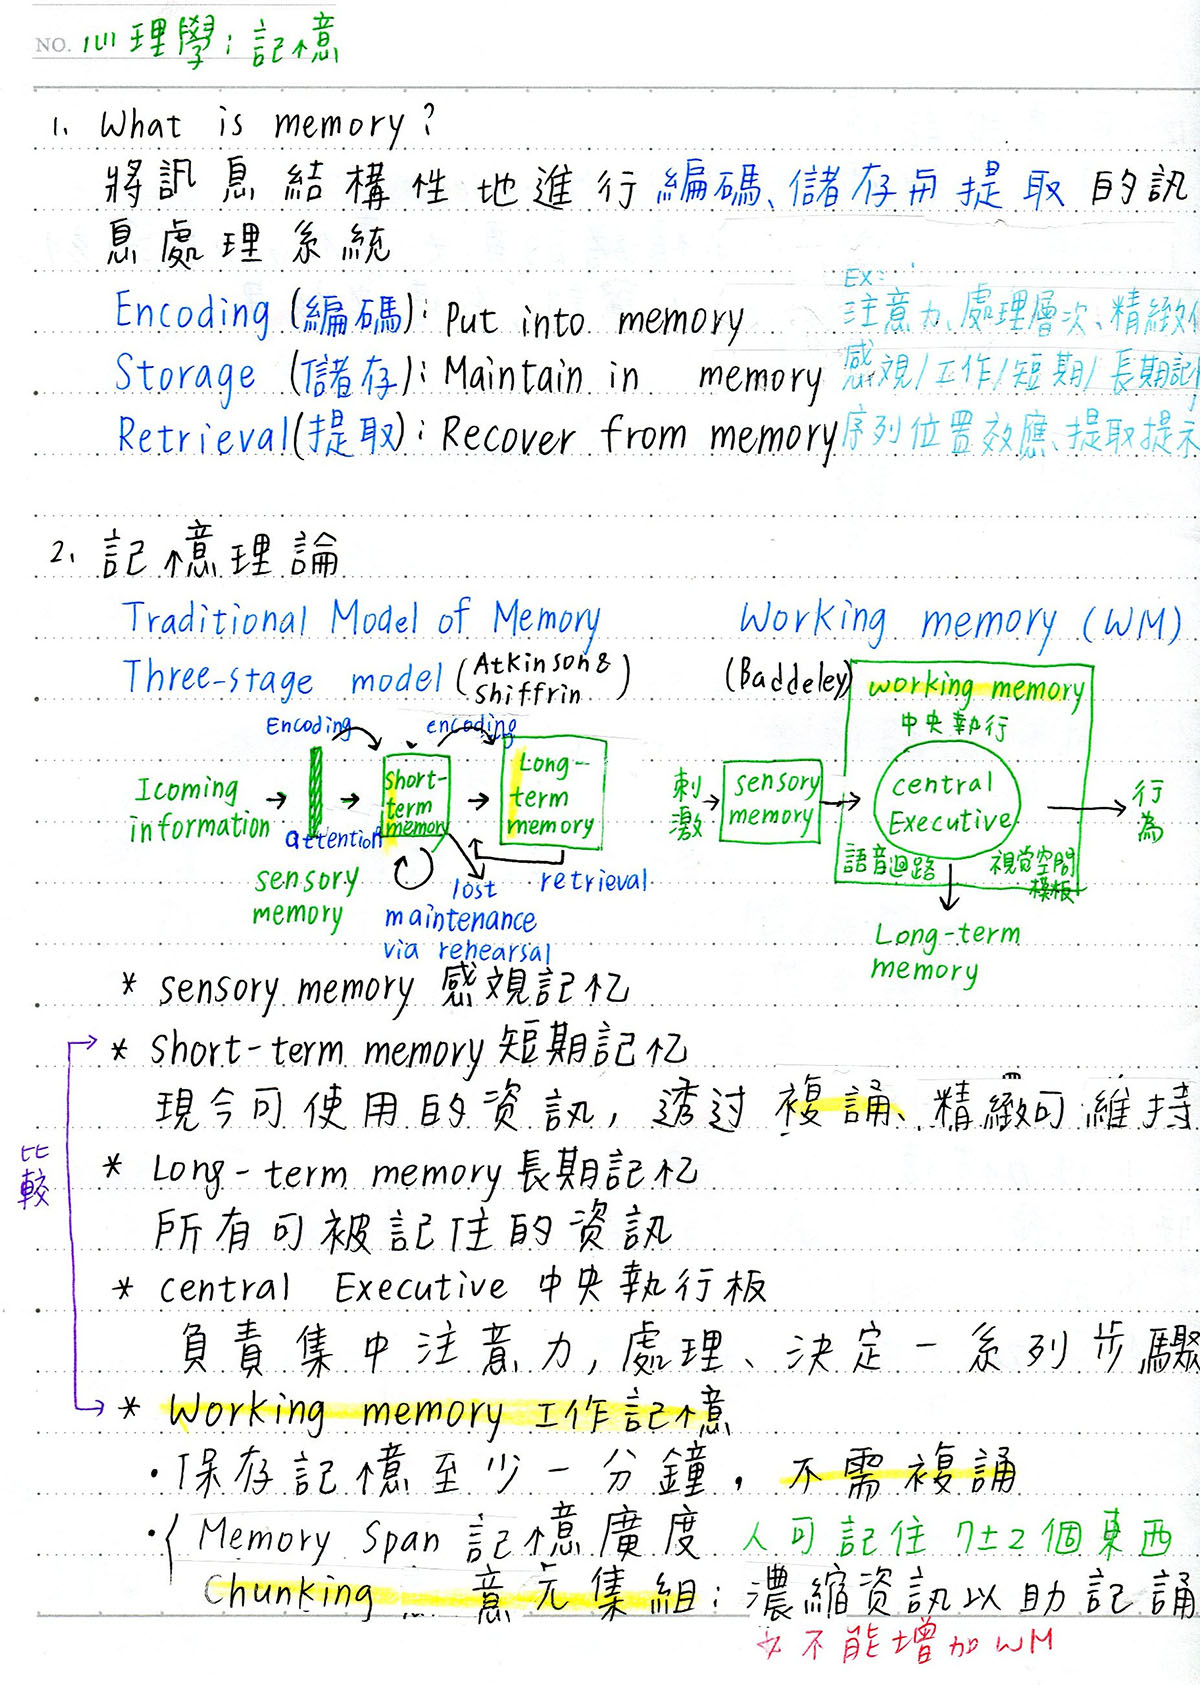 NO. 心理學:記憶
1. What is memory?
將訊息結構性地進行編碼、儲存再提取的訊
息處理系統
Ex:
Encoding (編碼): Put into memory 注意力、處理層次、精緻化
Storage (儲存): Maintain in memory 感覌/工作/短期/長期記
Retrieval(提取): Recover from memory 序列位置效應、提取提示
2. 記憶理論
Traditional Model of Memory
Three-stage model (Atkinson & Shiffrin)
Encoding
encoding
Icoming
information
attention
sensory
memory
Short-
term
memory
Long-
term
memory
lost
retrieval
maintenance
via rehearsal
Working memory (WM)
(Baddeley)
working memory
中央執行
刺激
sensory
memory
central
Executive
語音迴路
視覚空間
模板
行為
Long-term
memory
* sensory memory 感覌記忆
* Short-term memory 短期記忆
現今可使用的資訊, 透过複誦、精緻可維持
* Long-term memory 長期記忆
所有可被記住的資訊
* central Executive 中央執行板
負責集中注意力, 處理、決定一系列步驟
比較
* Working memory 工作記憶
·保存記憶至少一分鐘, 不需複誦
·{ Memory Span 記憶廣度 人可記住 7±2個東西
Chunking 意元集組: 濃縮資訊以助記誦
不能增加WM